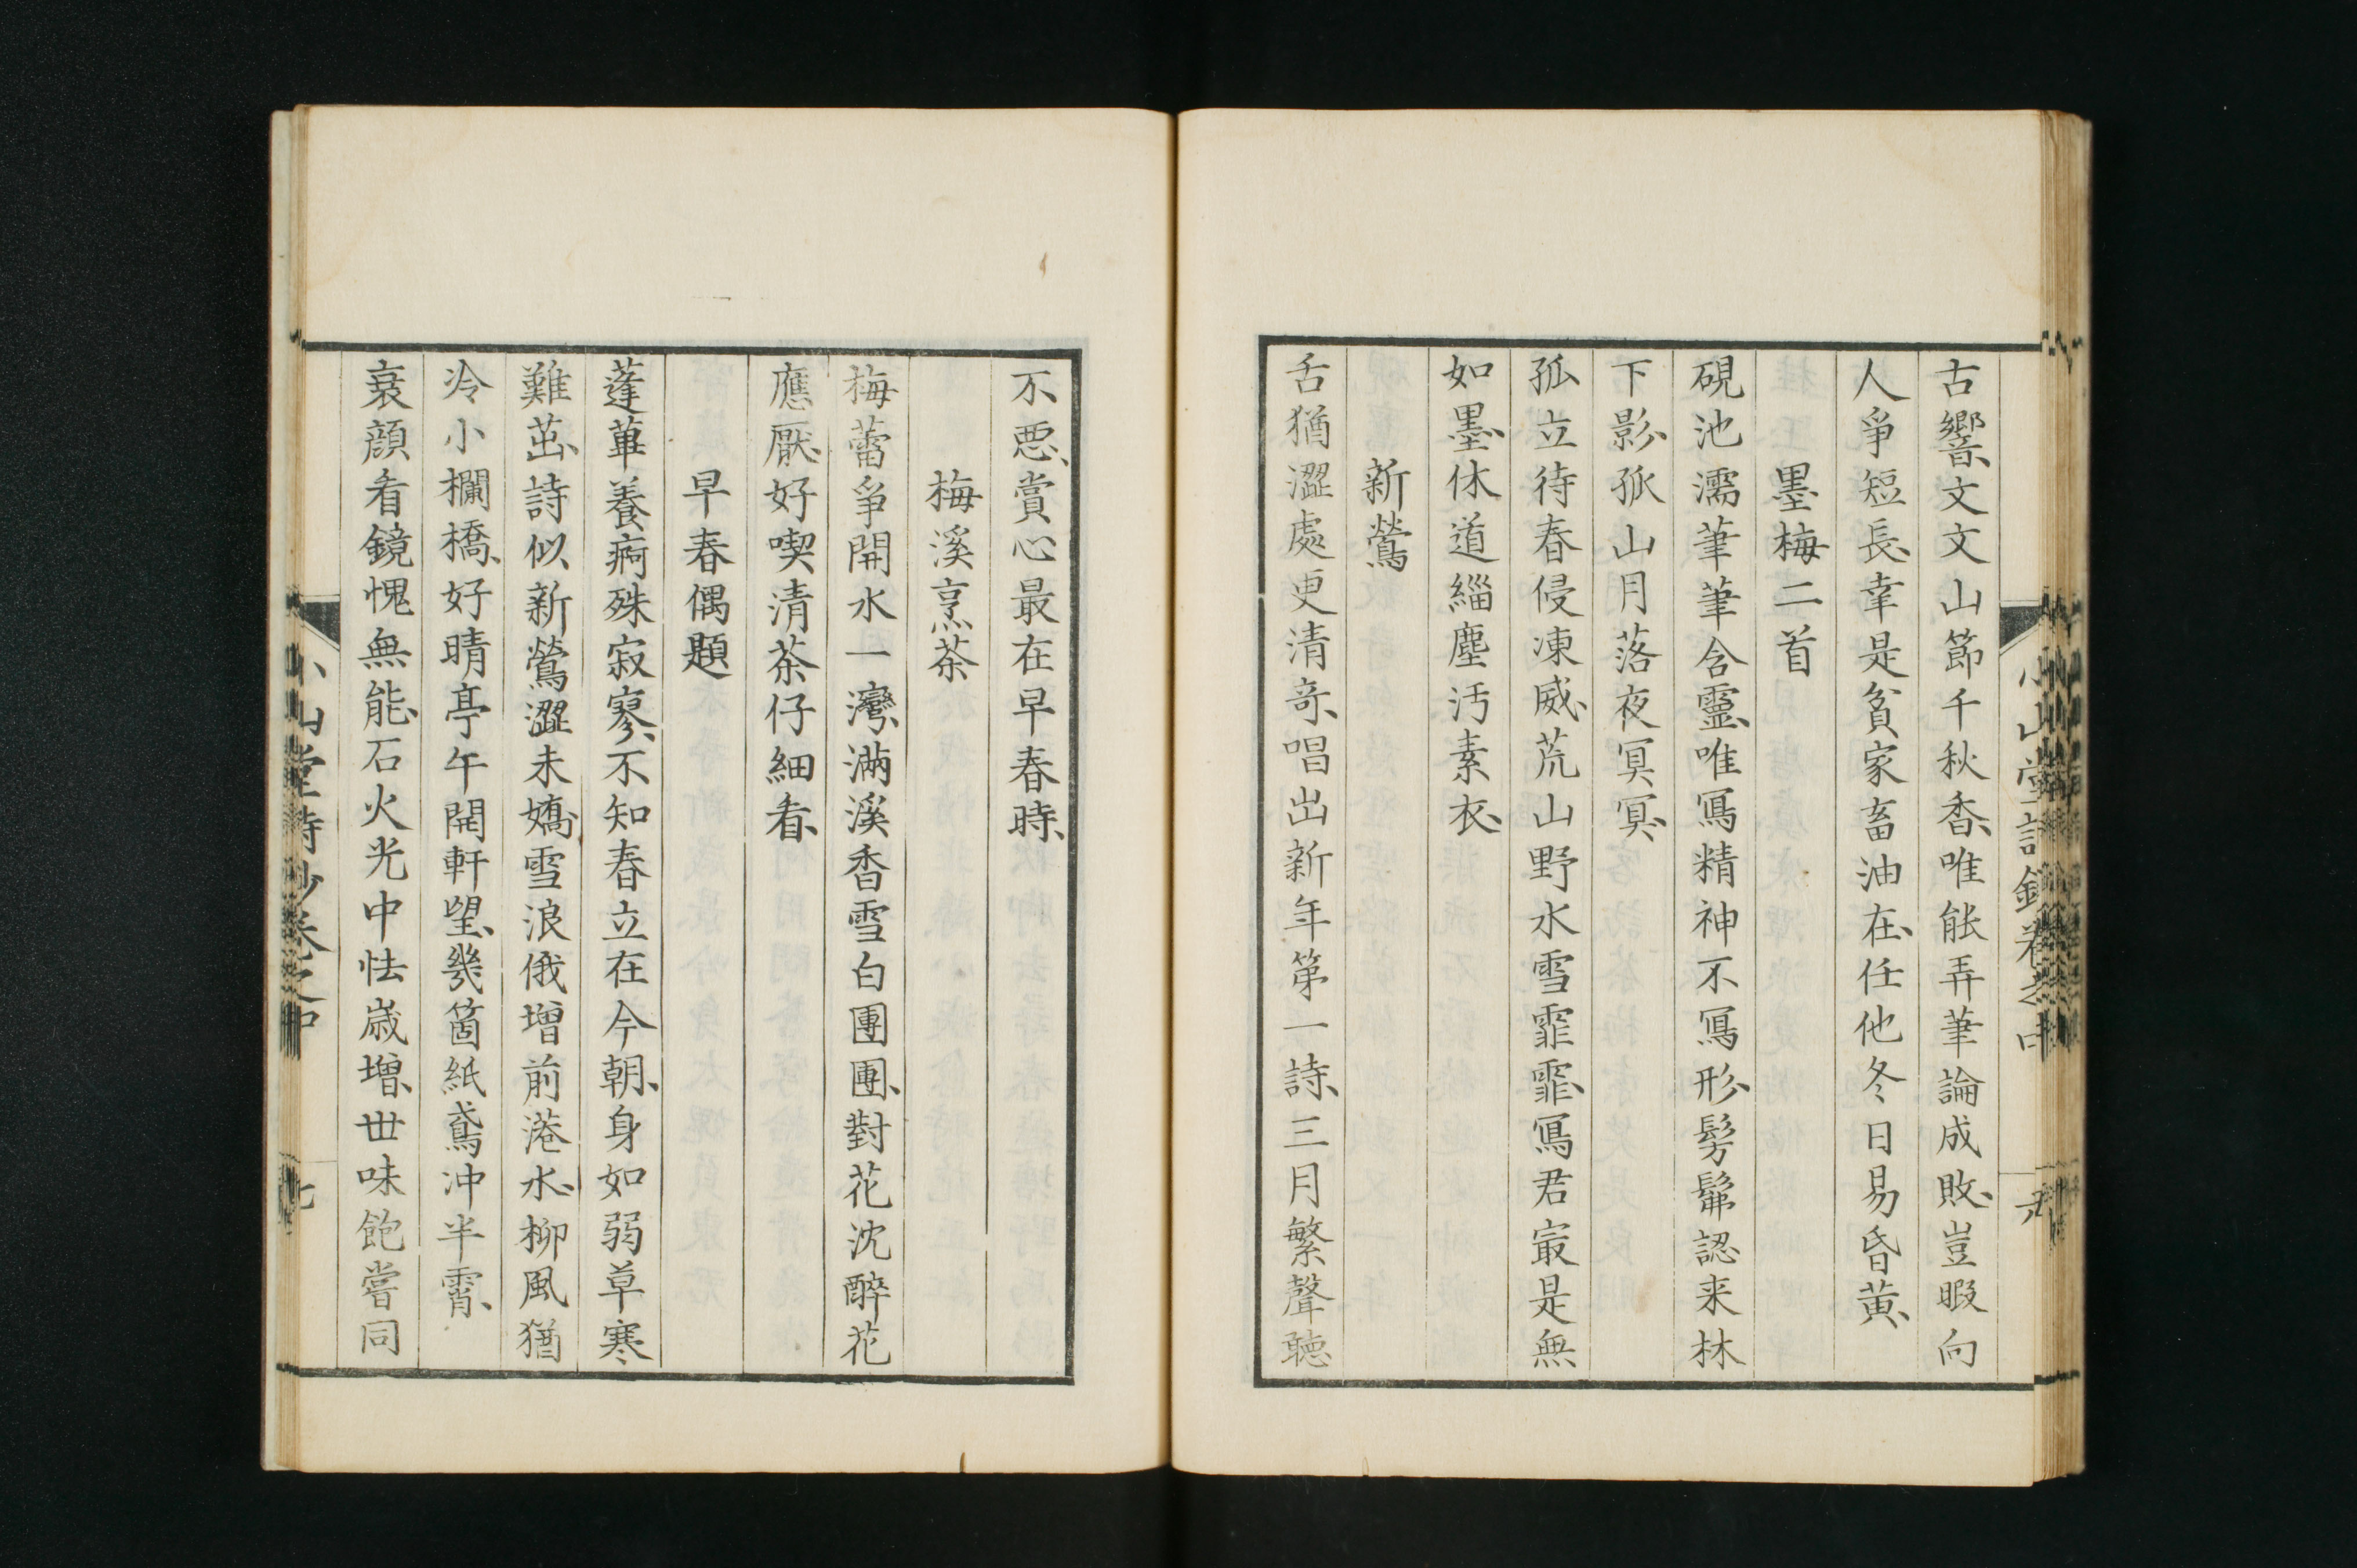 古響、文文山節千秋香、唯能弄筆論成敗、豈暇向
人爭短長、幸是貧家畜油在、任他冬日易昏黃、
墨梅二首
硯池濡筆筆含靈、唯寫精神不寫形、髣髴認来林
下影、孤山月落夜冥冥、
孤立待春侵凍威、荒山野水雪霏霏、寫君最是無
如墨、休道緇塵汚素衣、
新鶯
舌猶澀處更清奇、唱出新年第一詩、三月繁聲聽
小山堂詩鈔卷之中
不惡、賞心最在早春時、
梅溪烹茶
梅蕾爭開水一灣、滿溪香雪白團團、對花沈醉花
應厭、好喫清茶仔細看、
早春偶題
蓬蓽養痾殊寂寥、不知春立在今朝、身如弱草寒
難茁、詩似新鶯澀未嬌、雪浪俄增前港水、柳風猶
冷小欄橋、好晴亭午開軒望、幾箇紙鳶沖半霄、
衰顔看鏡愧無能、石火光中怯歲增、世味飽嘗同
小山堂詩鈔卷之中